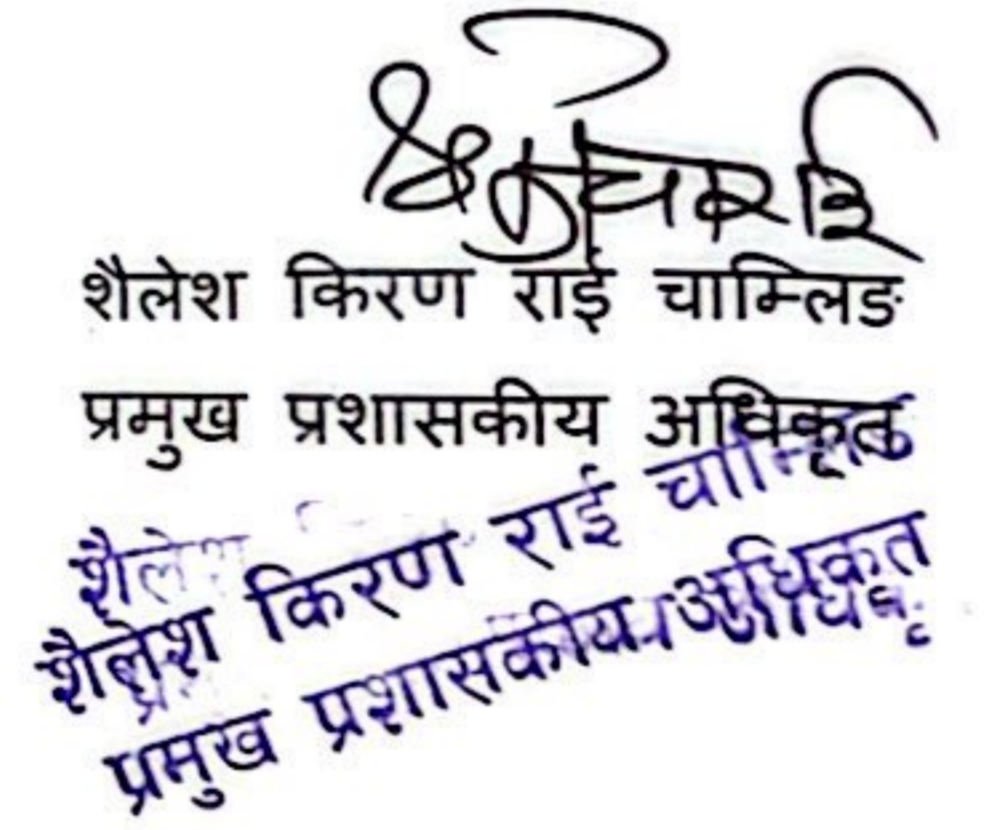 शैलेश किरण राई चाम्लिङ
प्रमुख प्रशासकीय अधिकृत
शैलेश किरण राई चाम्लिङ
प्रमुख प्रशासकीय अधिकृत